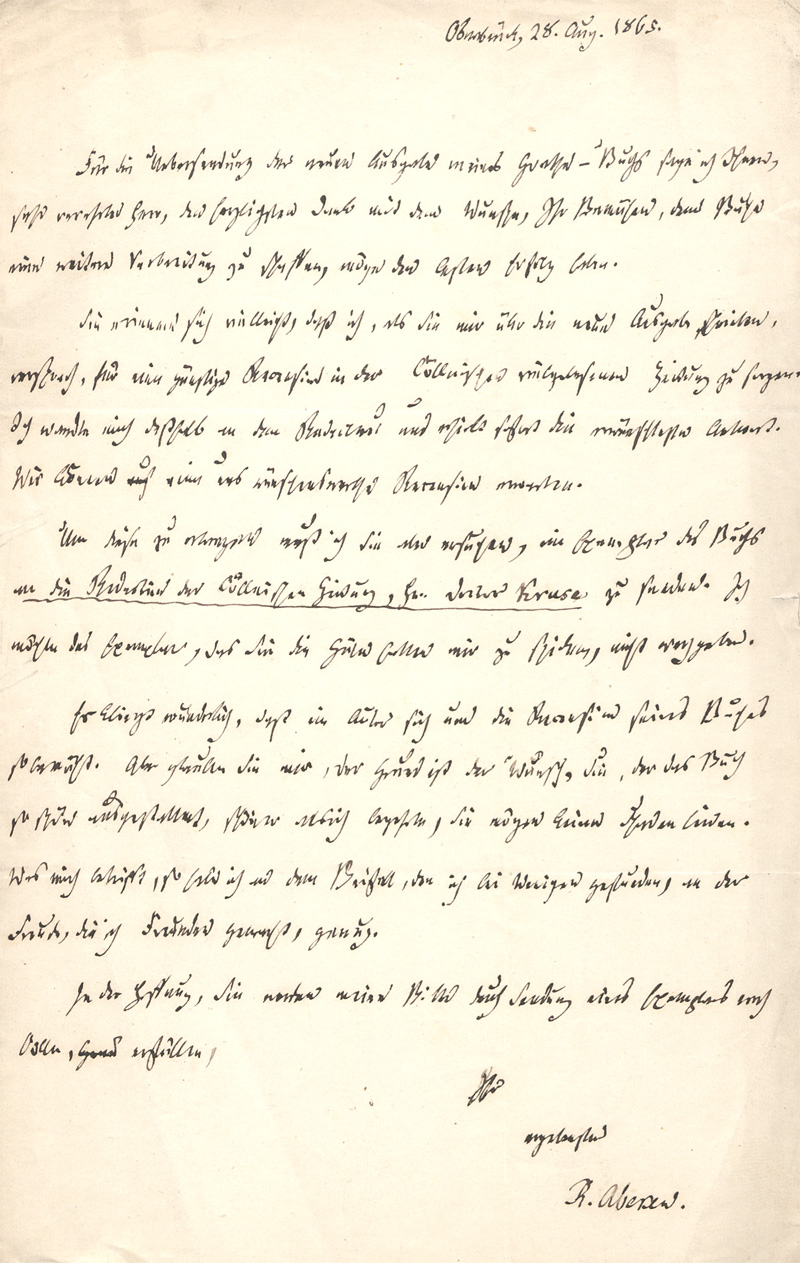 Osnabrück, 28. Aug. 1865.
Für die Uebersendung der neuen Ausgabe meines Goethe-Buchs sage ich Ihnen,
sehr verehrter Herr, den herzlichsten Dank mit dem Wunsche, Ihr Bemühen, dem Buche
eine weitere Verbreitung zu schaffen, möge den besten Erfolg haben.
Sie erinnern sich vielleicht, daß ich, als Sie mir über die neue Ausgabe schrieben,
versprach, für eine günstige Recension in der Cöllnischen vielgelesenen Zeitung zu sorgen.
Ich wandte mich deßhalb an den Redacteur und erhielt sofort die erwünschteste Antwort.
Wir können auf eine uns wünschenswerthe Recension erwarten.
Um diese zu muß ich Sie aber ersuchen, ein Exemplar des Buchs
an die Redaction der Cöllnischen Zeitung, Hrn. Doctor Kruse zu senden. Ich
möchte das Exemplar, das Sie die Güte hatten mir zu schicken, nicht weggeben.
Es klingt wunderlich, daß ein Autor sich um die Recension seines Buches
so bemüht. Aber glauben Sie mir, der Grund ist der Wunsch, Sie, der das Buch
so schön ausgestattet, schöner als ich begehrte, Sie mögen keinen Schaden leiden.
Was mich betrifft, so habe ich an dem Beifall, den ich bei Wenigen gefunden, an der
Freude, die ich Freunden gemacht, genug.
In der Hoffnung, Sie werden meine Bitte durch Sendung eines Exemplars nach
Cölln, erfüllen,
Ihr
ergebenster
R. Abeken.